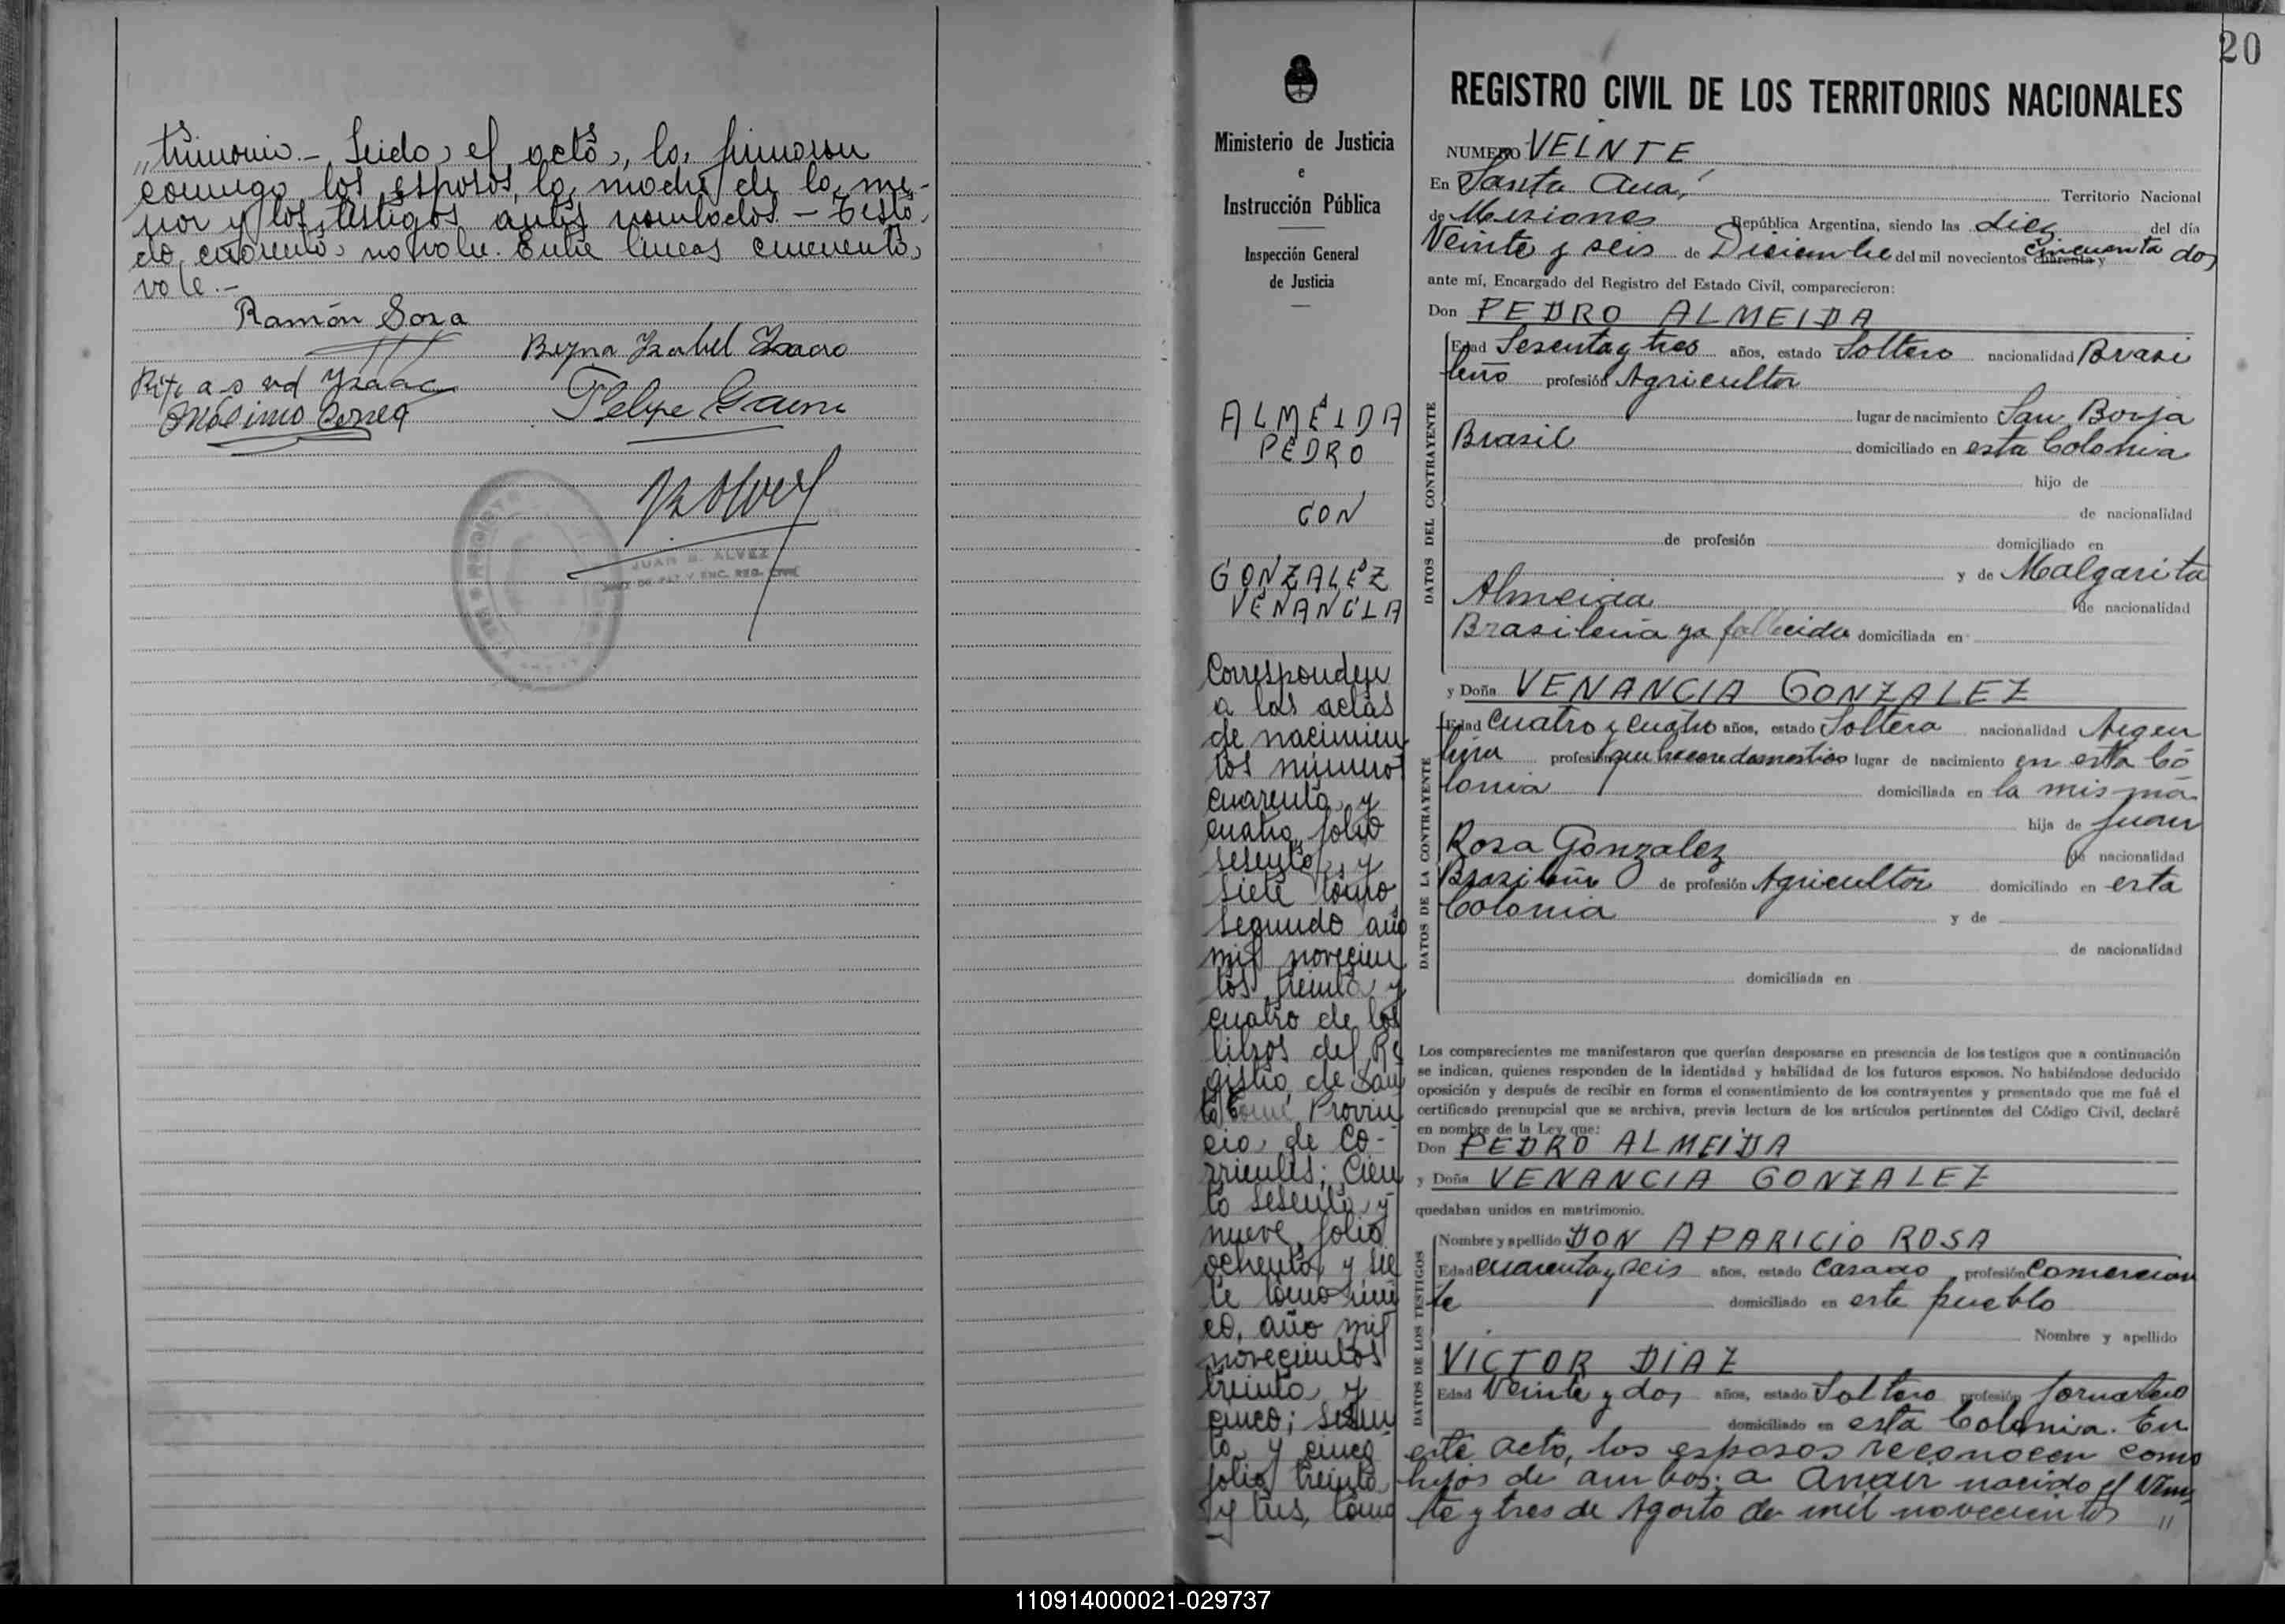 „trimonio.- Leido, el acto, lo, firmaron
conmigo los esposos, la, madre de la, me-
nor y los testigos antes nombrados. - Testa
do, cuarenta, no vale. Entre lineas cincuenta,
vale.-
Ramón Sosa
Reyna Ysabel Ysaac
Felipe
JUAN B. ALVEZ
JUEZ DE PAZ Y ENC. REG. CIVIL
20
Ministerio de Justicia
e
Instrucción Pública
Inspección General
de Justicia
ALMEIDA
PEDRO
CON
GONZALEZ
VENANCIA
Corresponden
a las actas
de nacimien
tos número
cuarenta, y
cuatro, folio
sesenta, y
siete tomo
segundo año
mil novecien
tos treinta y
cuatro de los
libros del Re
gistro de San
to Tomé Provin
cia, de Co-
rrientes; Cien
to sesenta, y
nueve, folio
ochenta, y sie
te tomo úni
co, año mil
novecientos
treinta, y
cinco; sesen
ta, y cinco
folio treinta
y tres, tomo
REGISTRO CIVIL DE LOS TERRITORIOS NACIONALES
NUMERO VEINTE
En Santa Ana, Territorio Nacional
de Misiones República Argentina, siendo las diez del día
Veinte y seis de Diciembre del mil novecientos cuarenta y cincuenta dos
ante mí, Encargado del Registro del Estado Civil, comparecieron:
Don PEDRO ALMEIDA
DATOS DEL CONTRAYENTE
Edad Sesenta y tres años, estado Soltero nacionalidad Brasi
leño profesión Agricultor
lugar de nacimiento San Borja
Brasil domiciliado en esta Colonia
hijo de
de nacionalidad
de profesión domiciliado en
y de Malgarita
Almeida de nacionalidad
Brasileña ya fallecida domiciliada en
y Doña VENANCIA GONZALEZ
DATOS DE LA CONTRAYENTE
Edad Cuatro y cuatro años, estado Soltera nacionalidad Argen
tina profesión quehacere domestico lugar de nacimiento en esta Co
lonia domiciliada en la misma
hija de Juan
Rosa Gonzalez de nacionalidad
Brasileño de profesión Agricultor domiciliado en esta
Colonia y de
de nacionalidad
domiciliada en
Los comparecientes me manifestaron que querían desposarse en presencia de los testigos que a continuación
se indican, quienes responden de la identidad y habilidad de los futuros esposos. No habiéndose deducido
oposición y después de recibir en forma el consentimiento de los contrayentes y presentado que me fué el
certificado prenupcial que se archiva, previa lectura de los artículos pertinentes del Código Civil, declaré
en nombre de la Ley que:
Don PEDRO ALMEIDA
y Doña VENANCIA GONZALEZ
quedaban unidos en matrimonio.
DATOS DE LOS TESTIGOS
Nombre y apellido DON APARICIO ROSA
Edad cuarenta y seis años, estado Casado profesión Comercian
te domiciliado en este pueblo
Nombre y apellido
VICTOR DIAZ
Edad Veinte y dos años, estado Soltero profesión Jornalero
domiciliado en esta Colonia. En
este acto, los esposos reconocen como
hijos de ambos: a Anair nacido el Vein
te y tres de Agosto de mil novecientos „
110914000021-029737